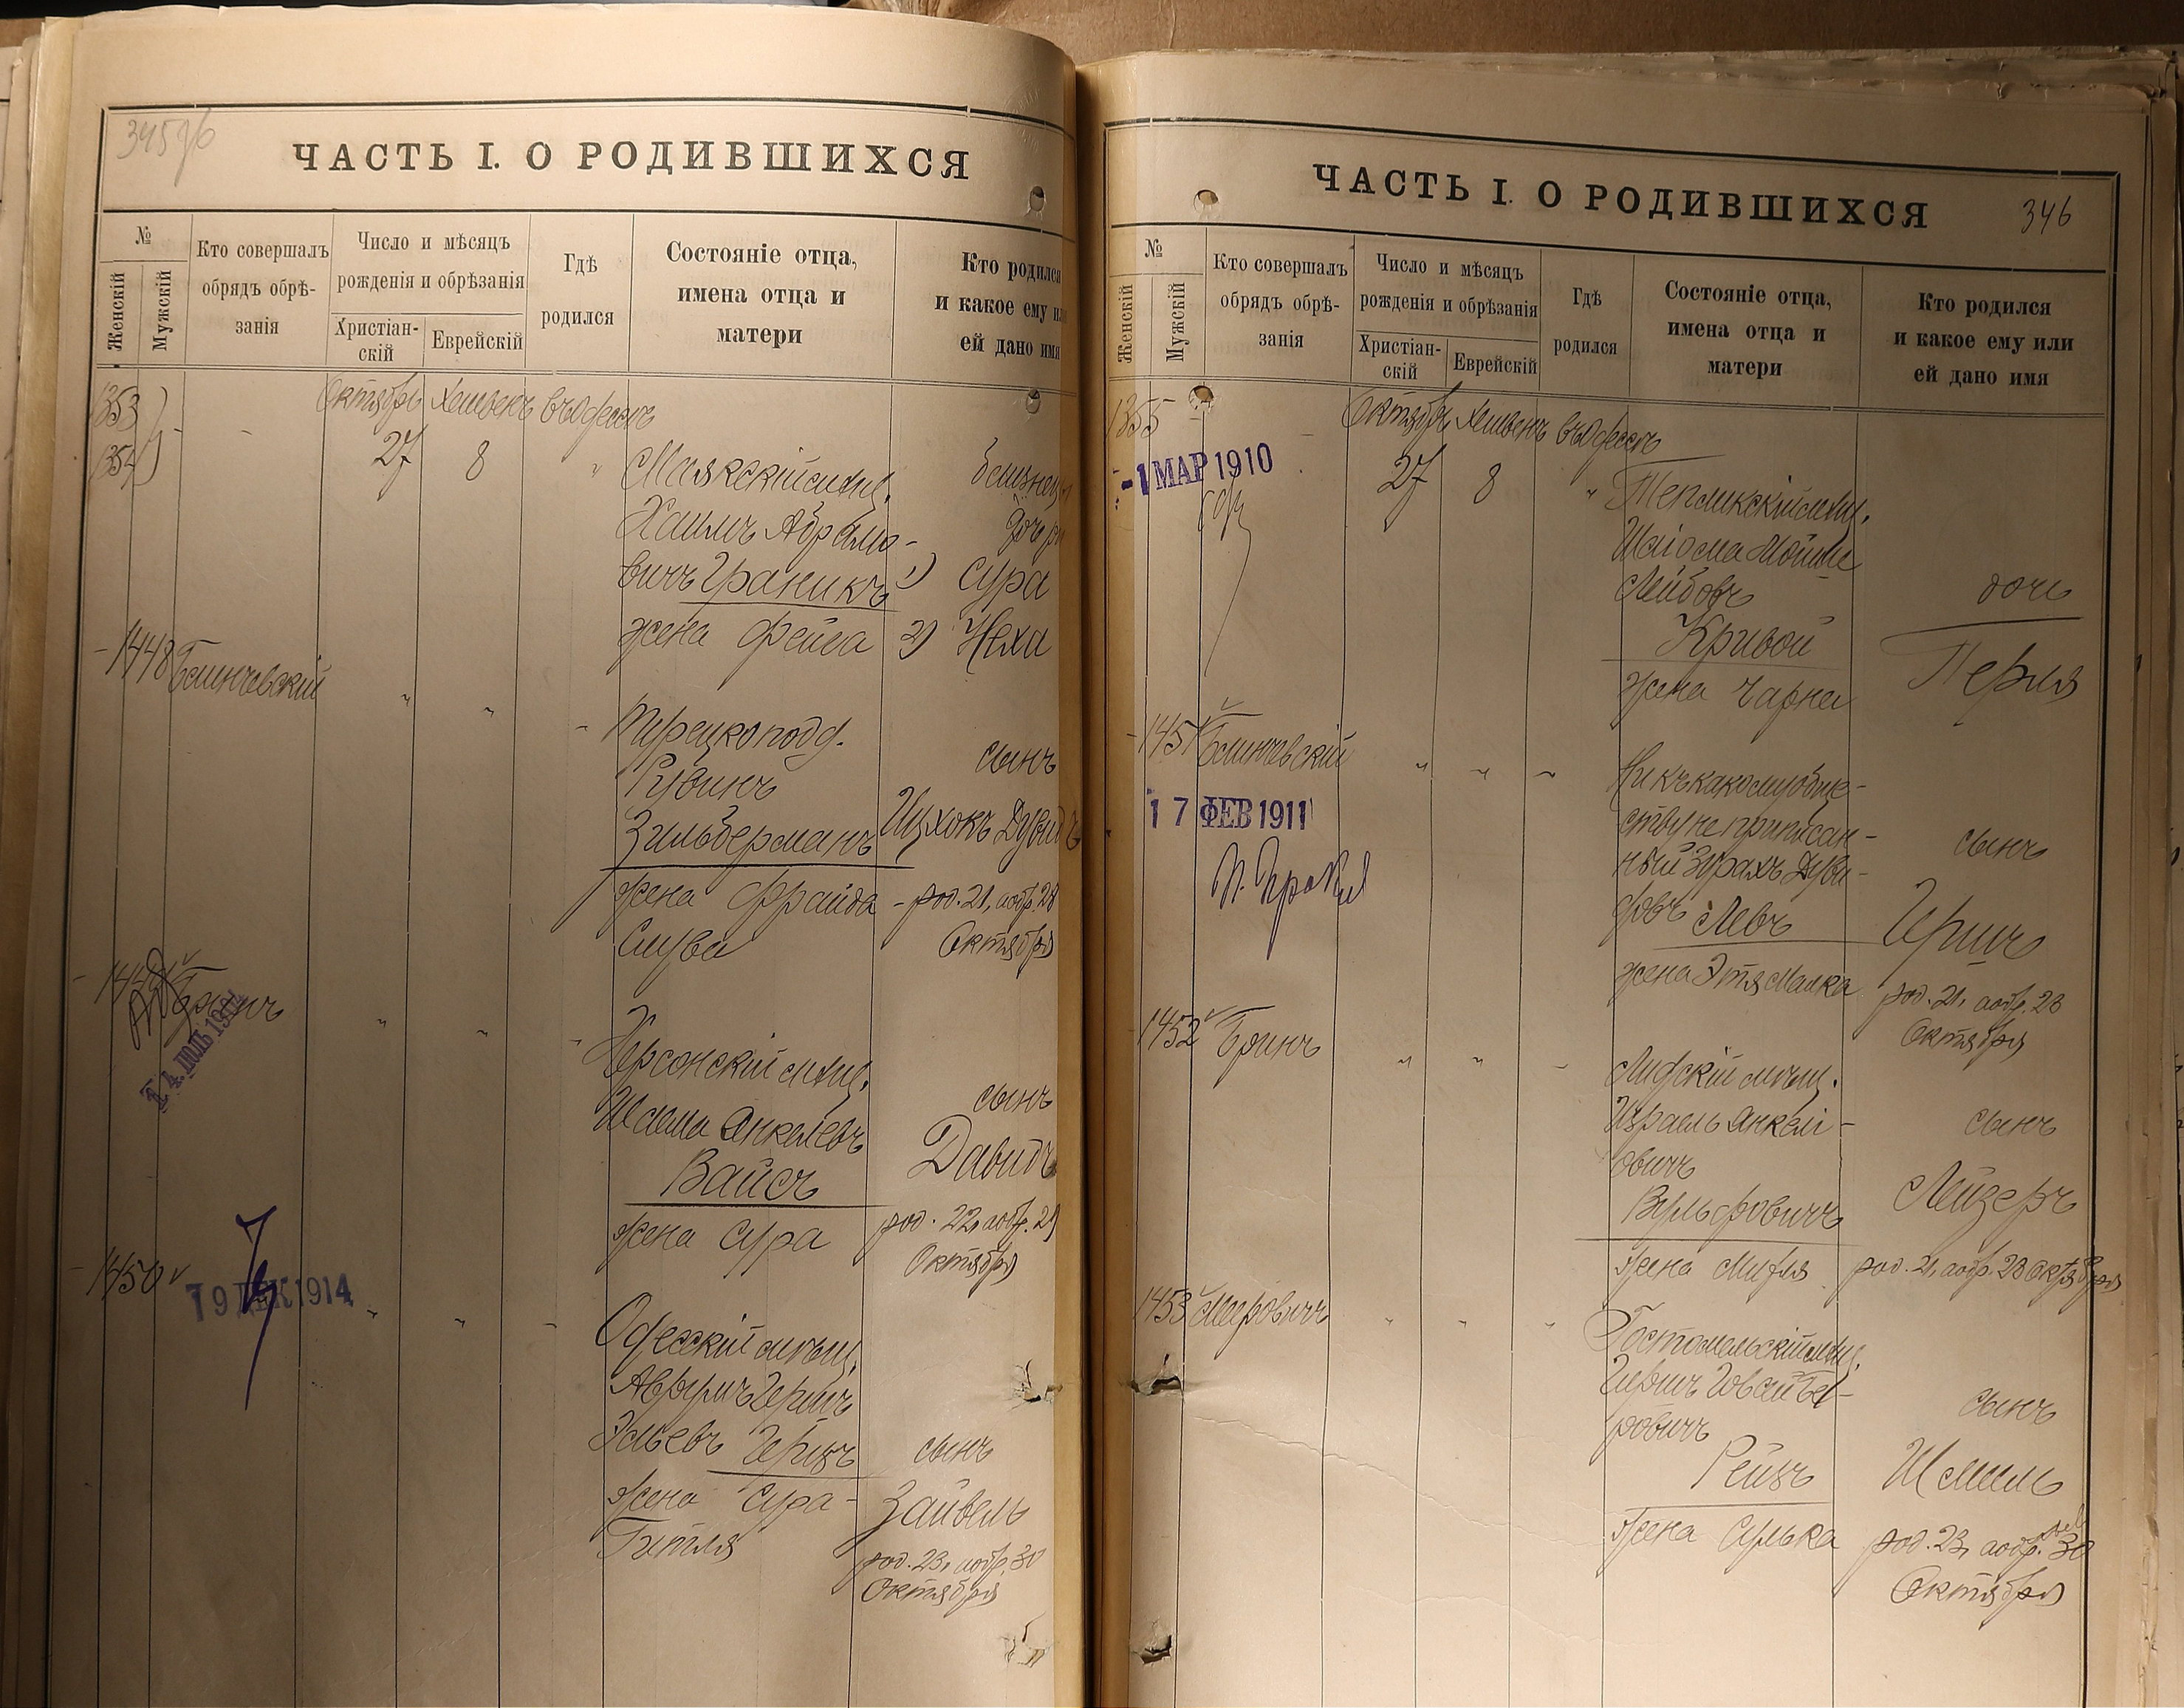 345об
ЧАСТЬ I. О РОДИВШИХСЯ
№
Женскій
Мужскій
Кто совершалъ
обрядъ обрѣ-
занія
Число и мѣсяцъ
рожденія и обрѣзанія
Христіан-
скій
Еврейскій
Гдѣ
родился
Состояніе отца,
имена отца и
матери
Кто родился
и какое ему или
ей дано имя
1353
1354
Октябрь Хешвенъ въ Одессѣ
27 8 "
Маякскій мѣщ.
Хаимъ Абрамо-
вичъ Граникъ
жена Фейга
близнецы
дочери
1) Сура
2) Неха
1448 Блинчевскій " " "
Турецкоподд.
Рувинъ
Зильберманъ
жена Фрайда
Слува
сынъ
Ицхокъ Дувидъ
род. 21, а обр. 28
Октября
Бринъ " " "
4. ІЮЛЬ
Херсонскій мѣщ.
Шлема Янкелевъ
Вайсъ
жена Сура
сынъ
Давидъ
род. 22, а обр. 29
Октября
1450 " " "
19 ДЕК 1914
Одесскій мѣщ.
Аврумъ Гершъ
Эльевъ Герцъ
жена Сура-
Гитля
сынъ
Зайвель
род. 23, а обр. 30
Октября
ЧАСТЬ I. О РОДИВШИХСЯ
346
№
Женскій
Мужскій
Кто совершалъ
обрядъ обрѣ-
занія
Число и мѣсяцъ
рожденія и обрѣзанія
Христіан-
скій
Еврейскій
Гдѣ
родился
Состояніе отца,
имена отца и
матери
Кто родился
и какое ему или
ей дано имя
1355
Октябрь Хешвенъ въ Одессѣ
-1 МАР 1910
27 8 "
Тепликскій мѣщ.
Шлёма Мойше
Лейбовъ
Кривой
жена Чарна
дочь
Перля
1451 Блинчевскій " " "
17 ФЕВ 1911
Ни къ какому обще-
ству не приписан-
ный Зурахъ Дуви-
довъ Левъ
жена Этя Малка
сынъ
Гершъ
род. 21, а обр. 28
Октября
1452 Бринъ " " "
Лидскій мѣщ.
Израель Янкелі-
овичъ
Вульфовичъ
жена Миндля
сынъ
Лейзеръ
род. 21, а обр. 28 Октября
1453 Меировичъ " " "
Гостомельскій мѣщ.
Гершъ Іовсей Бе-
ровичъ
Рейзъ
жена Сулька
сынъ
Шмиль
род. 23, а обр. 30
Октября